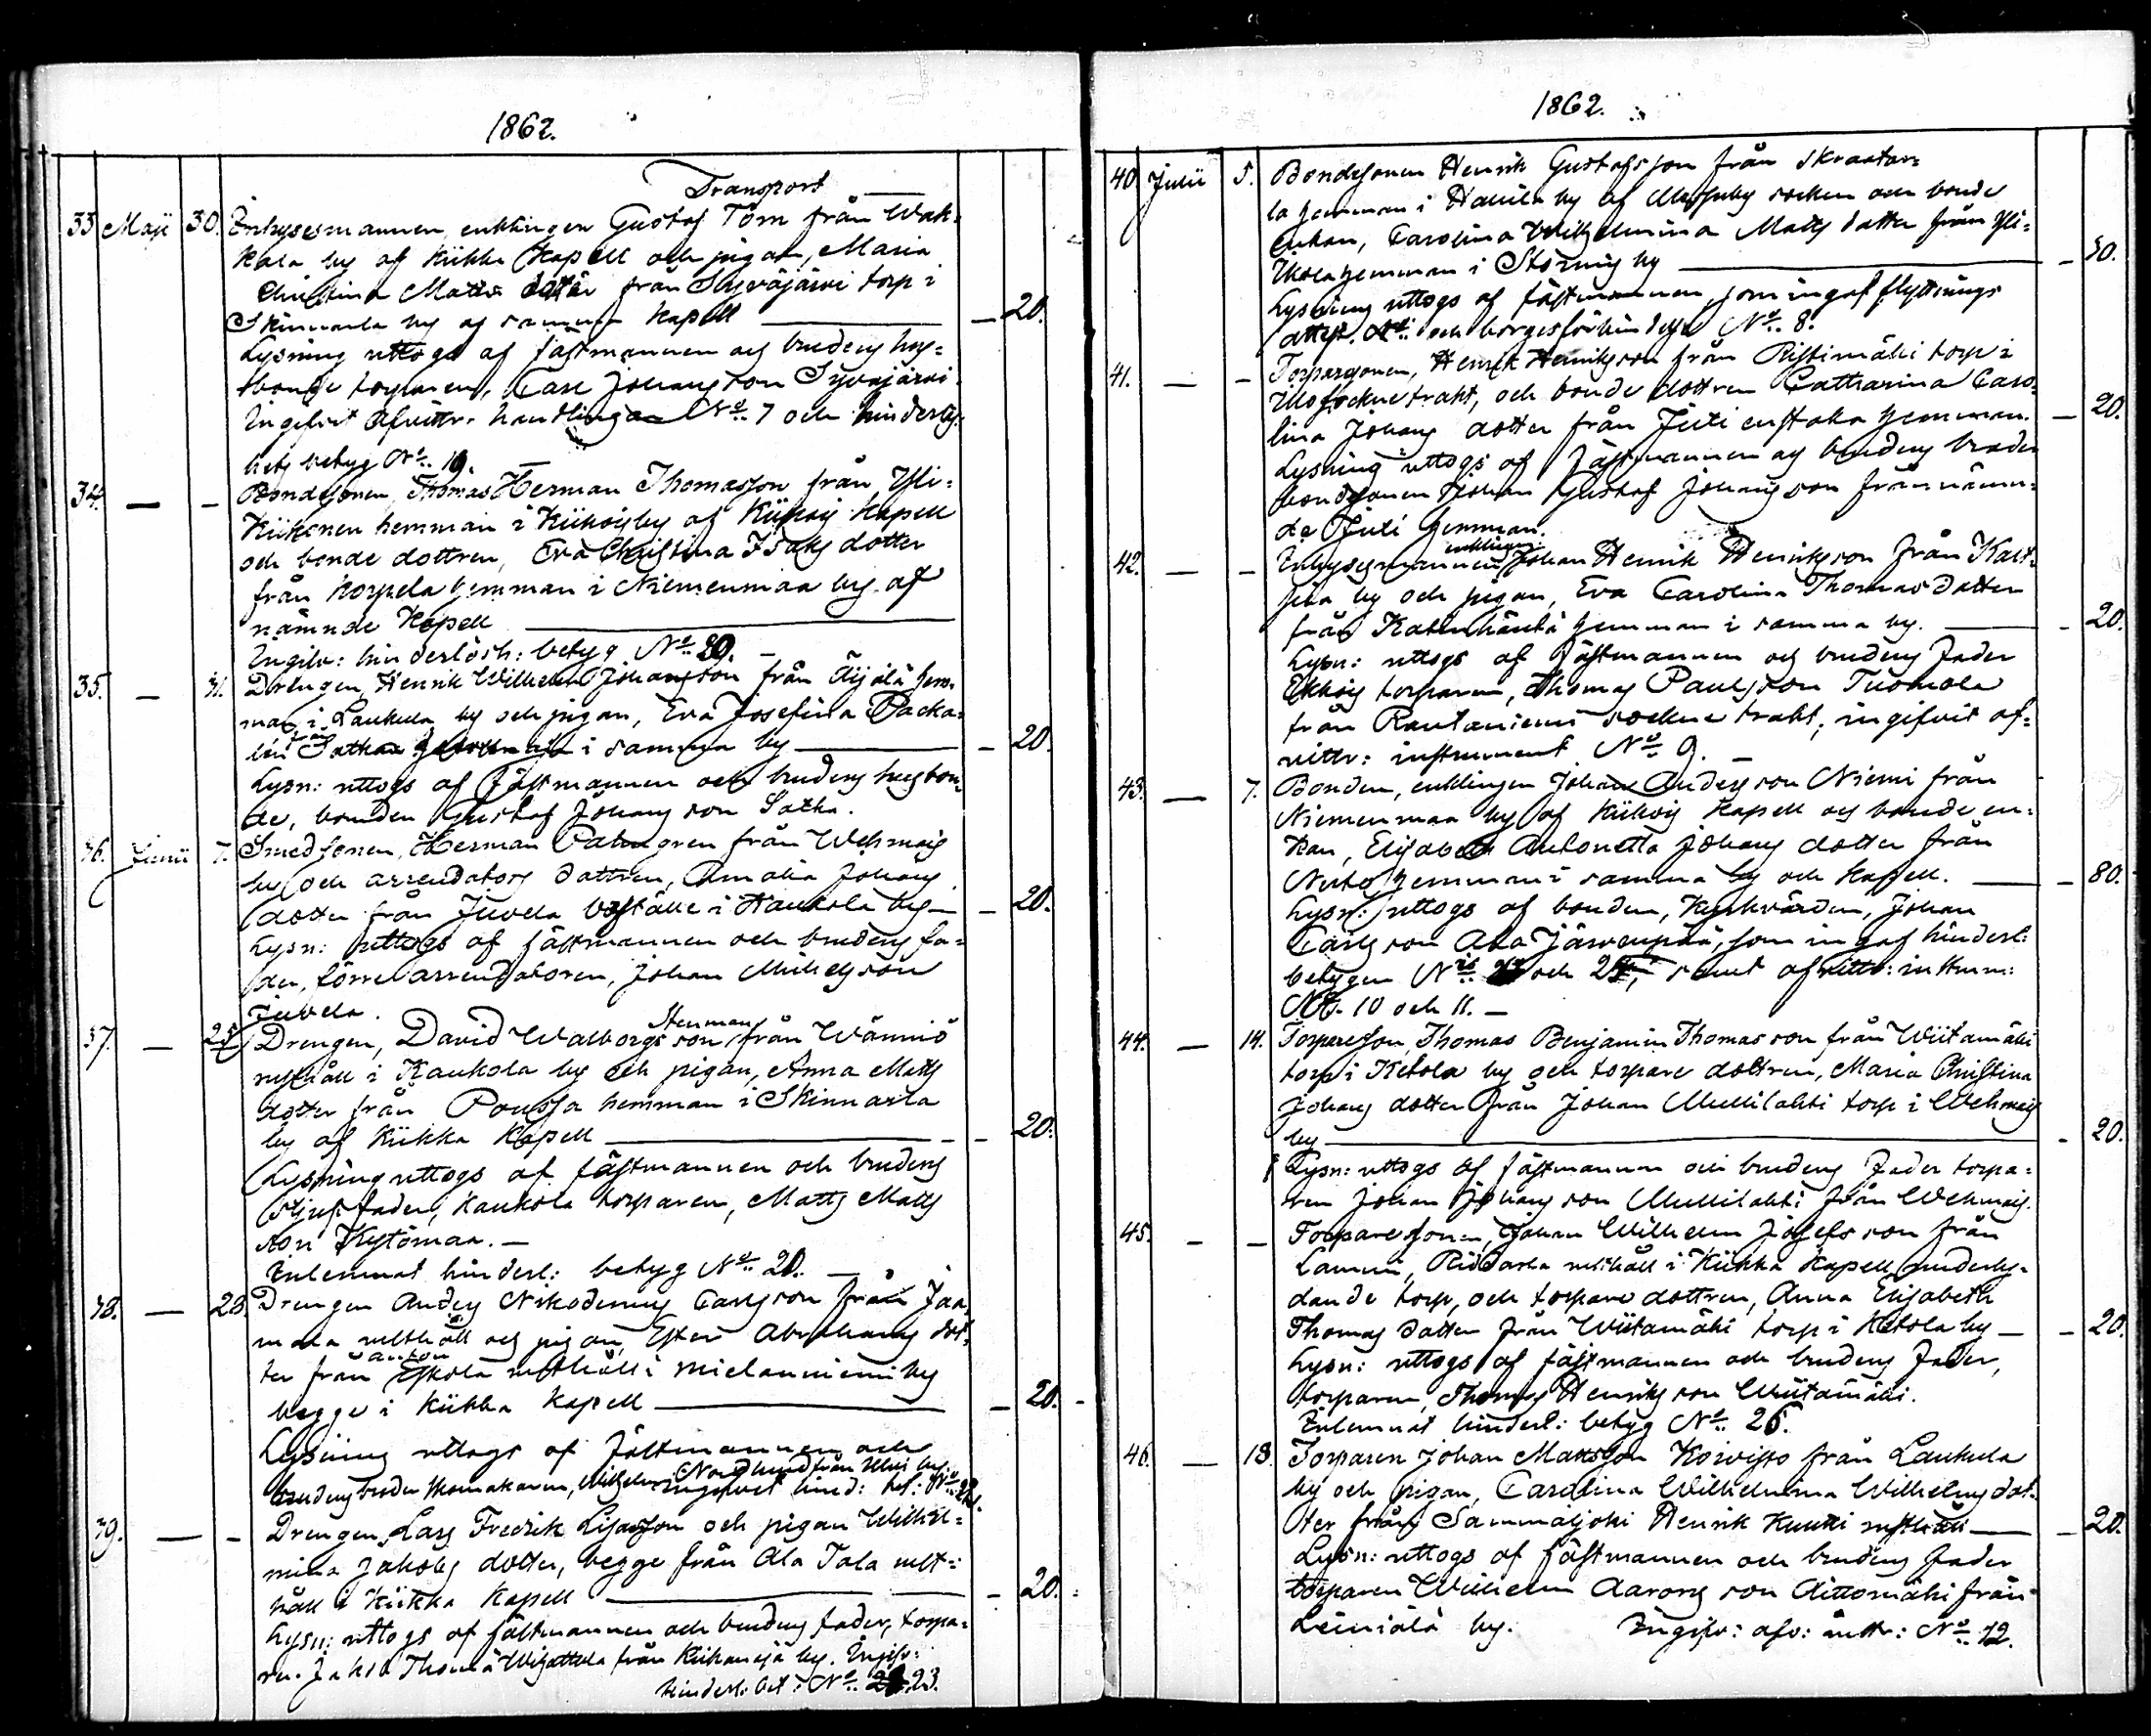 1862.
Transport
33. Maji 30. Inhysesmannen, enklingen Gustaf Törn från Wak-
kala by af Kiikka Kapell och pigan, Maria
Christina Matts dotter från Syväjärvi torp i
Skinnarla by af samma Kapell — 20.
Lysning uttogs af fästmannen och brudens hus-
bonde torparen, Carl Johansson Syväjärvi.
Ingifvit afvittr. handlingar No. 7 och hinderlös-
hets betyg No. 19.
34. — - Bondesonen, Thomas Herman Thomasson från Yli-
Kiikonen hemman i Kiikois by af Kiikois Kapell
och bonde dottren, Eva Christina Isaks dotter
från Korpela hemman i Niemenmaa by af
nämnde Kapell
Ingifv: hinderlösh: betyg No. 20. -
35. — 31. Drengen, Henrik Wilhelm Johansson från Äijälä hem-
man i Laukula by och pigan, Eva Josefina Packa-
lin från Satka i samma by — 20.
Lysn: uttogs af fästmannen och brudens husbon-
de, bonden Gustaf Johansson Satka.
36. Junii 7. Smedsonen, Herman Palmgren från Wehmais
by och arrendators dottren, Amalia Johans
dotter från Juvela boställe i Haukola by — 20.
Lysn: uttogs af fästmannen och brudens fa-
der, förre arrendatoren, Johan Michelsson
Juvela.
37. — 25. Drengen, David Walborgs son Stenman från Wänniö
rusthåll i Kaukola by och pigan, Anna Matts
dotter från Poussa hemman i Skinnarla
by af Kiikka Kapell — 20.
Lysning uttogs af fästmannen och brudens
stjuffader, Kaukola torparen, Matts Matts
son Kytömaa. —
Inlemnat hinderl: betyg No. 21. —
38. — 28. Drengen Anders Nikodemus Carlsson från Jaa-
mala rusthåll och pigan, Ester Abrahams dot-
ter från Anton Eskola rusthåll i Mielanniemi by
begge i Kiikka Kapell — 20.
Lysning uttogs af fästmannen och
brudens broder skomakaren, Wilhelm Nordlund från Illois by. Ingifvit hind: bet: No. 22.
39. — - Drengen, Lars Fredrik Lisasson och pigan Wilhel-
mina Jakobs dotter, begge från Ala Tala rust-
håll i Kiikka Kapell — 20.
Lysn: uttogs af fästmannen och brudens fader, torpa-
ren Jakob Thoma från Kiikanoja by. Ingifv:
hinderl. bet: No. 23.
1862.
40. Julii 5. Bondesonen Henrik Gustafsson från Skraatar-
la hemman i Hauila by af Mouhy socken och bonde
enkan, Carolina Wilhelmina Matts dotter från Yli-
Ikola hemman i Stormis by — 50.
Lysning uttogs af fästmannen, som ingaf flyttnings
attest och borgesförbindelse No. 8.
41. — - Torparsonen, Henrik Henriksson från Ristimäki torp i
Illo sockne trakt, och bonde dottren Catharina Caro-
lina Johans dotter från Juti enstaka hemman. — 20.
Lysning uttogs af fästmannen och brudens broder
bondesonen Johan Gustaf Johansson från nämn-
de Juti hemman.
42. — - Inhysesmannen enklingen Johan Henrik Henriksson från Kärt-
by och pigan, Eva Carolina Thomas dotter
från Katinhäntä hemman i samma by. — 20.
Lysn: uttogs af fästmannen och brudens fader
Ekkois torparen, Thomas Paulsson Tuomola
från Rautaniemi sockne trakt; ingifvit af-
vittr: instrument No. 9.
43. — 7. Bonden, enklingen Johan Andersson Niemi från
Niemenmaa by af Kiikois Kapell och bonde en-
kan, Elisabeth Antonetta Johans dotter från
hemman i samma by och Kapell. — 80.
Lysn: uttogs af bonden, Kyrkvärden, Johan
Carlsson Ala Järvenpää, som ingaf hinderl:
betygen No. och 25, samt afvittr: instrum:
No. 10 och 11. —
44. — 14. Torpareson, Thomas Benjamin Thomasson från Wiitamäki
torp i Ketola by och torpare dottren, Maria Christina
Johans dotter från Johan Mullilahti torp i Wehmais
by — 20.
Lysn: uttogs af fästmannen och brudens fader torpa-
ren Johan Johansson Mullilahti från Wehmais.
45. - - Torparesonen, Johan Wilhelm Josefsson från
Lammi, Riddarla rusthåll i Kiikka Kapell underly-
dande torp, och torpare dottren, Anna Elisabeth
Thomas dotter från Wiitamäki torp i Ketola by — 20.
Lysn: uttogs af fästmannen och brudens fader,
torparen, Thomas Henriksson Wiitamäki.
Inlemnat hinderl: betyg No. 26.
46. — 18. Torparen Johan Mattsson Koivisto från Laukula
by och pigan, Carolina Wilhelmina Wilhelms dot-
ter från Sammaljoki Henrik Kuutti rusthåll — 20.
Lysn: uttogs af fästmannen och brudens fader
torparen Wilhelm Aarons son Aittomäki från
Leiniälä by. Ingifv: afv: instr: No. 12.